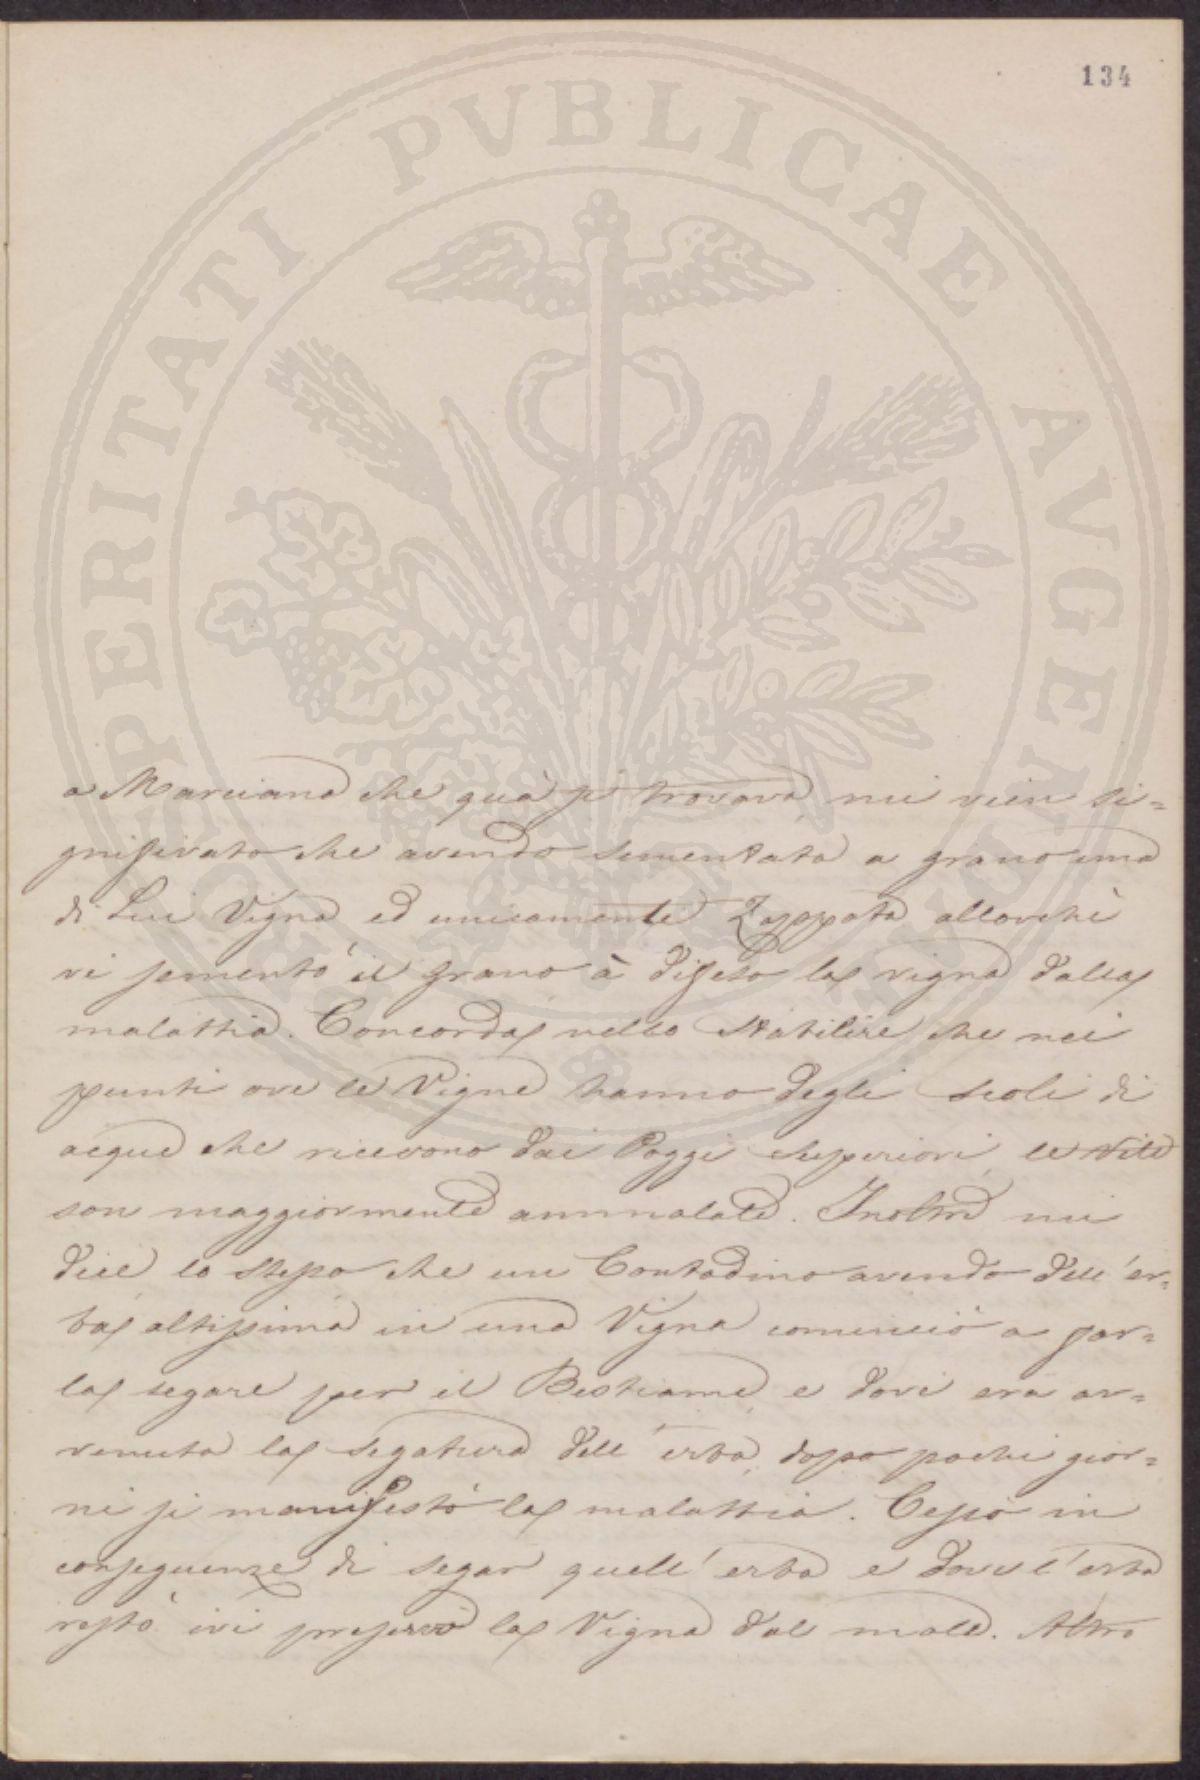 134
PROSPERITATI PUBLICAE AUGENDAE
a Marciana che quà si trovava mi vien si=
gnificato che avendo sementata a grano una
di Lui Vigna ed unicamente Zappata allorchè
vi sementò il grano à difeso la vigna dalla
malattia. Concorda nello Stabilire che nei
punti ove le Vigne hanno degli scoli di
acque che ricevono dai Poggi superiori, le Vite
son maggiormente ammalate. Inoltre mi
dice lo stesso che un Contadino avendo dell'er=
ba altissima in una Vigna cominciò a far=
la segare per il Bestiame, e dove era av=
venuta la segatura dell'erba, dopo pochi gior=
ni si manifestò la malattia. Cessò in
conseguenze di segar quell'erba e dove l'erba
restò ivi preservò la Vigna dal male. Altro